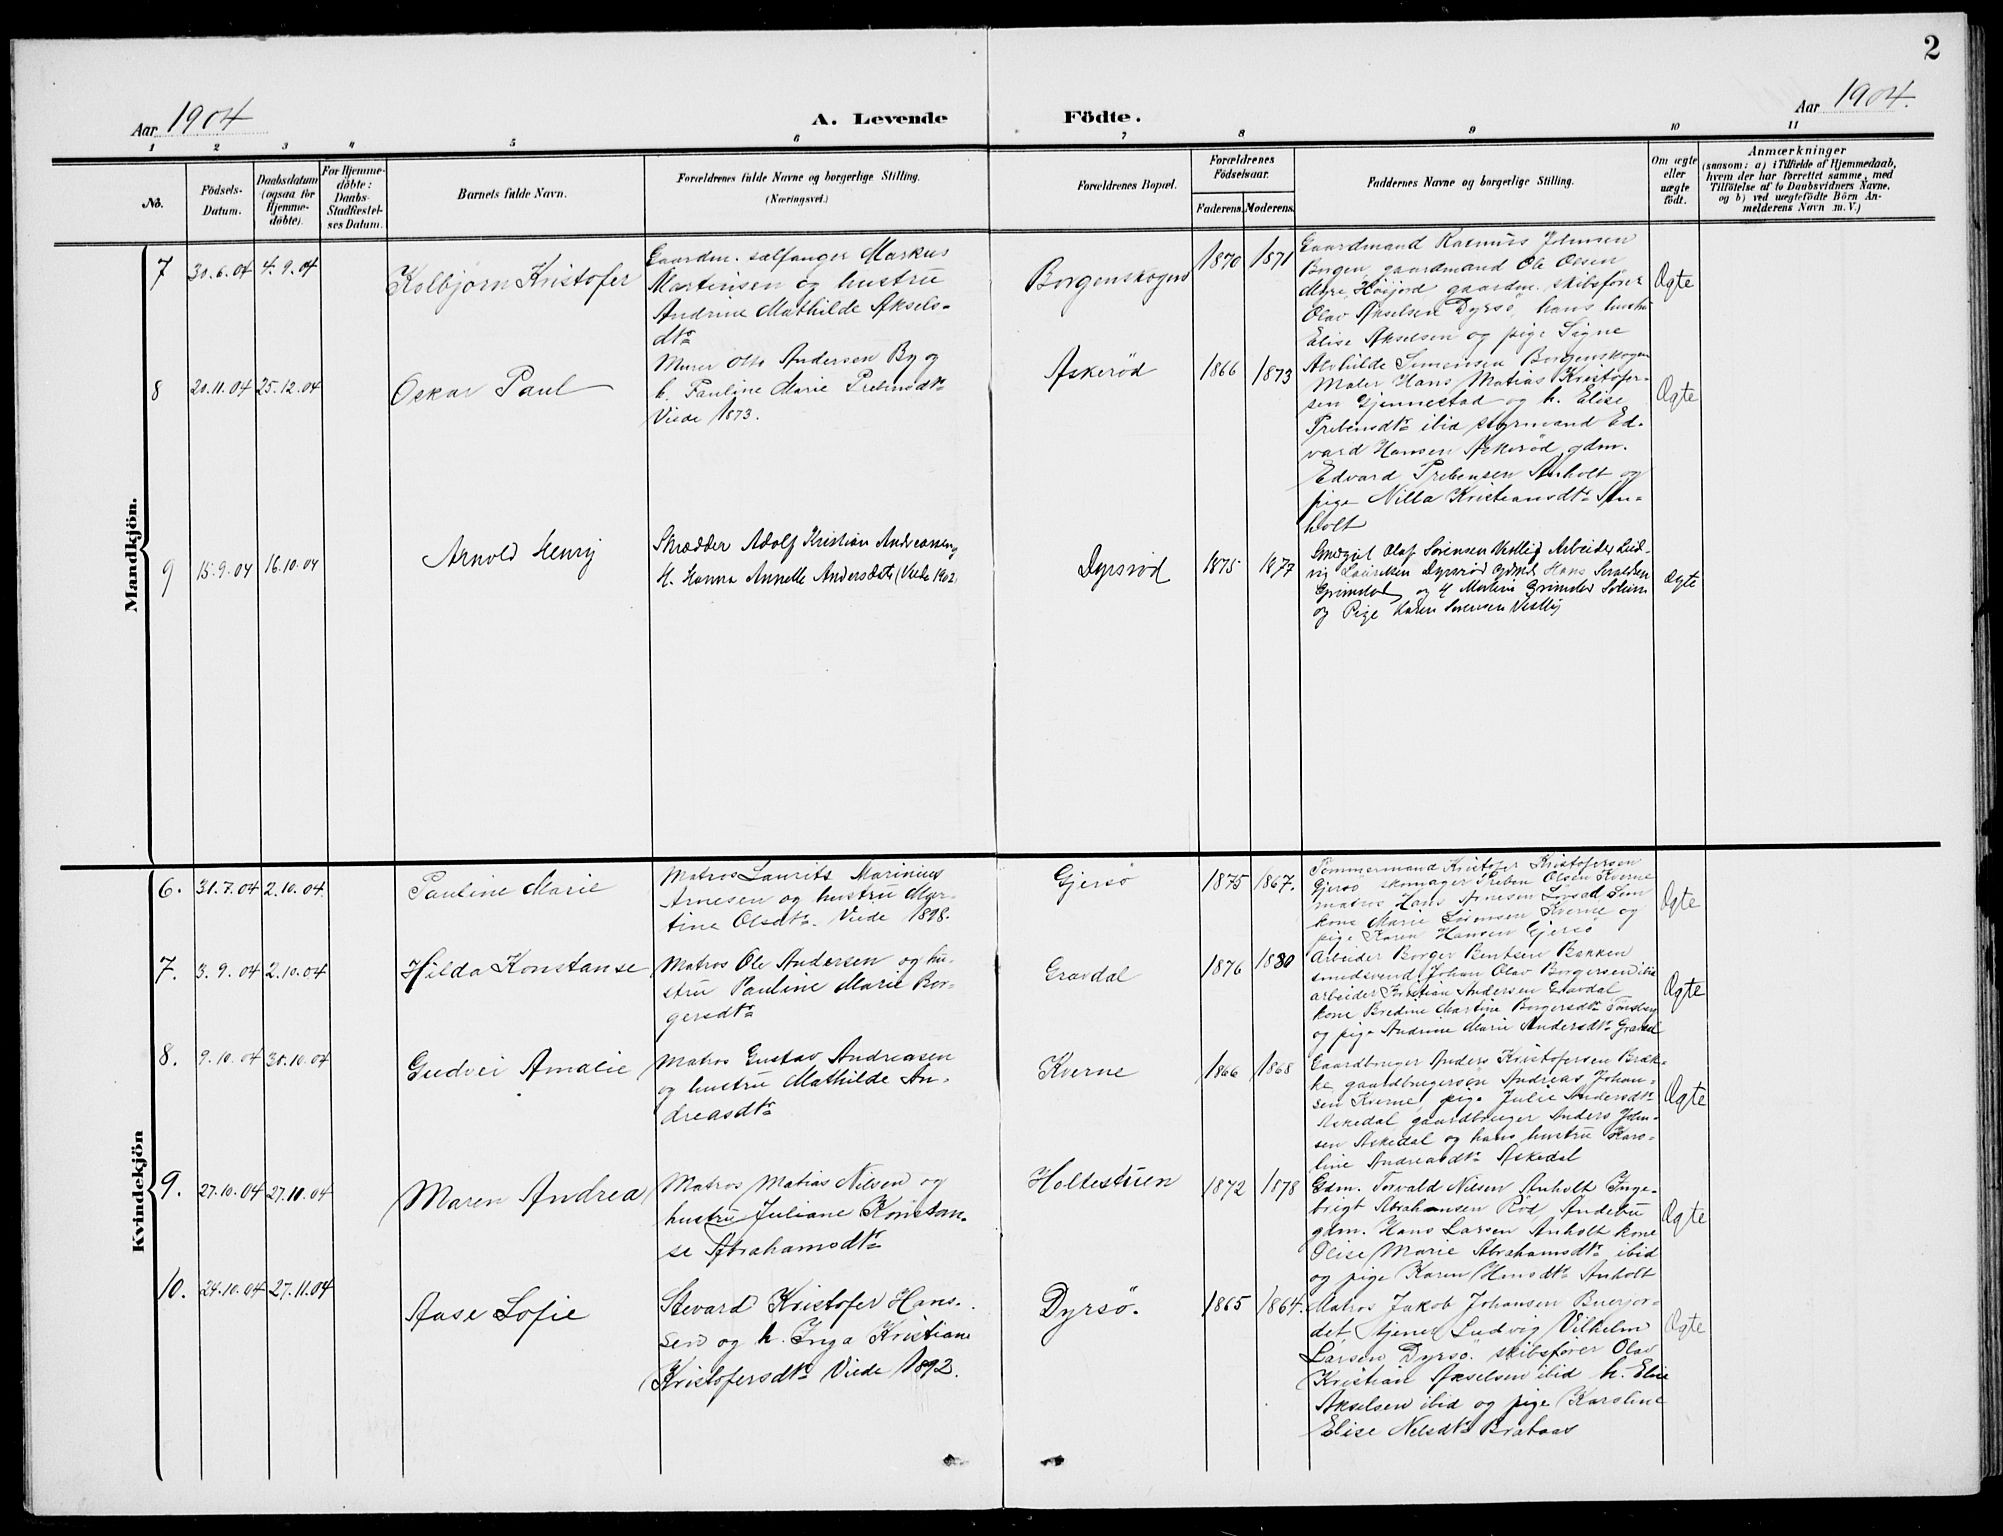 2
Aar 1904
A. Levende Födte.
Aar 1904.
1 2 3 4 5 6 7 8 9 10 11
No.
Födsels-Datum.
Daabsdatum (ogsaa for Hjemme-döbte).
For Hjemme-döbte: Daabs-Stadfæstel-ses Datum.
Barnets fulde Navn.
Forældrenes fulde Navne og borgerlige Stilling.
(Næringsvei.)
Forældrenes Bopæl.
Forældrenes Födselsaar.
Faderens. Moderens.
Faddernes Navne og borgerlige Stilling.
Om ægte eller uægte födt.
Anmærkninger
(saasom: a) i Tilfælde af Hjemmedaab,
hvem der har forrettet samme, med
Tilföielse af to Daabsvidners Navne,
og b) ved uægtefödte Börn An-
melderens Navn m. V.)
Mandkjön.
7 30.6.04 4.9.04 Kolbjørn Kristofer
Gaardm. sælfanger Markus
Martinsen og hustru
Andrine Mathilde Aksels-
dtr
Borgenskogen 1870 1871
Gaardmand Rasmus Johnsen
Borgen, gaardmand Ole Olsen
Myre, Höijord gaardm. skibsfører
Olav Akselsen Dyrsö, hans hustru
Elise Akselsen og pige Signe
Alvhilde Simensen Borgenskogen
Ægte
8 20.11.04 25.12.04 Oskar Paul
Murer Otto Andersen By og
h. Pauline Marie Prebensdtr
Viede 1873.
Askerød 1866 1873
Maler Hans Matias Kristofer-
sen Gjennestad og h. Elise
Prebensdtr ibid styrmand Ed-
vard Hansen Askerød, gdm.
Edvard Prebensen Anholt og
pige Nilla Kristiansdtr An-
holt
Ægte
9 15.9.04 16.10.04 Arnold Henry
Skrædder Adolf Kristian Andreassen og
H. Hanna Annette Andersdatter (Viede 1902)
Dyrsrød 1875 1877
Olaf Sørensen Vestly Arbeider Lud-
vig Lauritsen Dyrsrød Gdmd Hans
Grimstad og H Martine Grimstad
og Pige Karen Sørensen Vestly
Ægte
Kvindekjön
6. 31.7.04 2.10.04 Pauline Marie
Matros Laurits Marinius
Arnesen og hustru Mar-
tine Olsdtr. Viede 1898.
Gjersö 1875 1867.
Tømmermand Kristofer Kristofersen
Gjersö skomager Preben Olsen Kverne
matros Hans Arnesen
kone Marie Sørensen Kverne og
pige Karen Hansen Gjersö
Ægte
7. 3.9.04 2.10.04 Hilda Konstanse
Matros Ole Andersen og hu-
stru Pauline Marie Bor-
gersdtr
Gravdal 1876 1880
Arbeider Borger Bentsen Bakken
smedsvend Johan Olav Borgersen ibid
arbeider Kristian Andersen Gravdal
kone Bredine Martine Borgersdtr Tønsberg
og pige Andrine Marie Andersdtr Gravdal
Ægte
8. 9.10.04 30.10.04 Gudvei Amalie
Matros Gustav Andreasen
og hustru Mathilde An-
dreasdtr
Kverne 1866 1868
Gaardbruger Anders Kristofersen Bræk-
ke, gaardbrugersön Andreas Johan-
sen Kverne, pige Julie Andersdtr
Askedal, gaardbruger Anders Johan-
sen Askedal og hans hustru Karo-
line Andreasdtr Askedal
Ægte
9. 27.10.04 27.11.04 Maren Andrea
Matros Matias Nilsen og
hustru Juliane Konstan-
se Abrahamsdtr
Holtestuen 1872 1878
Gdm. Torvald Nilsen Anholt Inge-
brigt Abrahamsen Röd Andebu
gdm. Hans Larsen Anholt kone
Olise Marie Abrahamsdtr ibid
og pige Karen Hansdtr Anholt
Ægte
10. 24.10.04 27.11.04 Aase Sofie
Stevard Kristofer Han-
sen og h. Inga Kristiane
Kristofersdtr Viede 1892.
Dyrsö. 1865 1864.
Matros Jakob Johansen Buerjor-
det, tjener Ludvig Vilhelm
Larsen Dyrsö. skibsfører Olav
Kristian Akselsen ibid h. Elise
Akselsen ibid og pige Karoline
Elise Nilsdtr Braaaas
Ægte